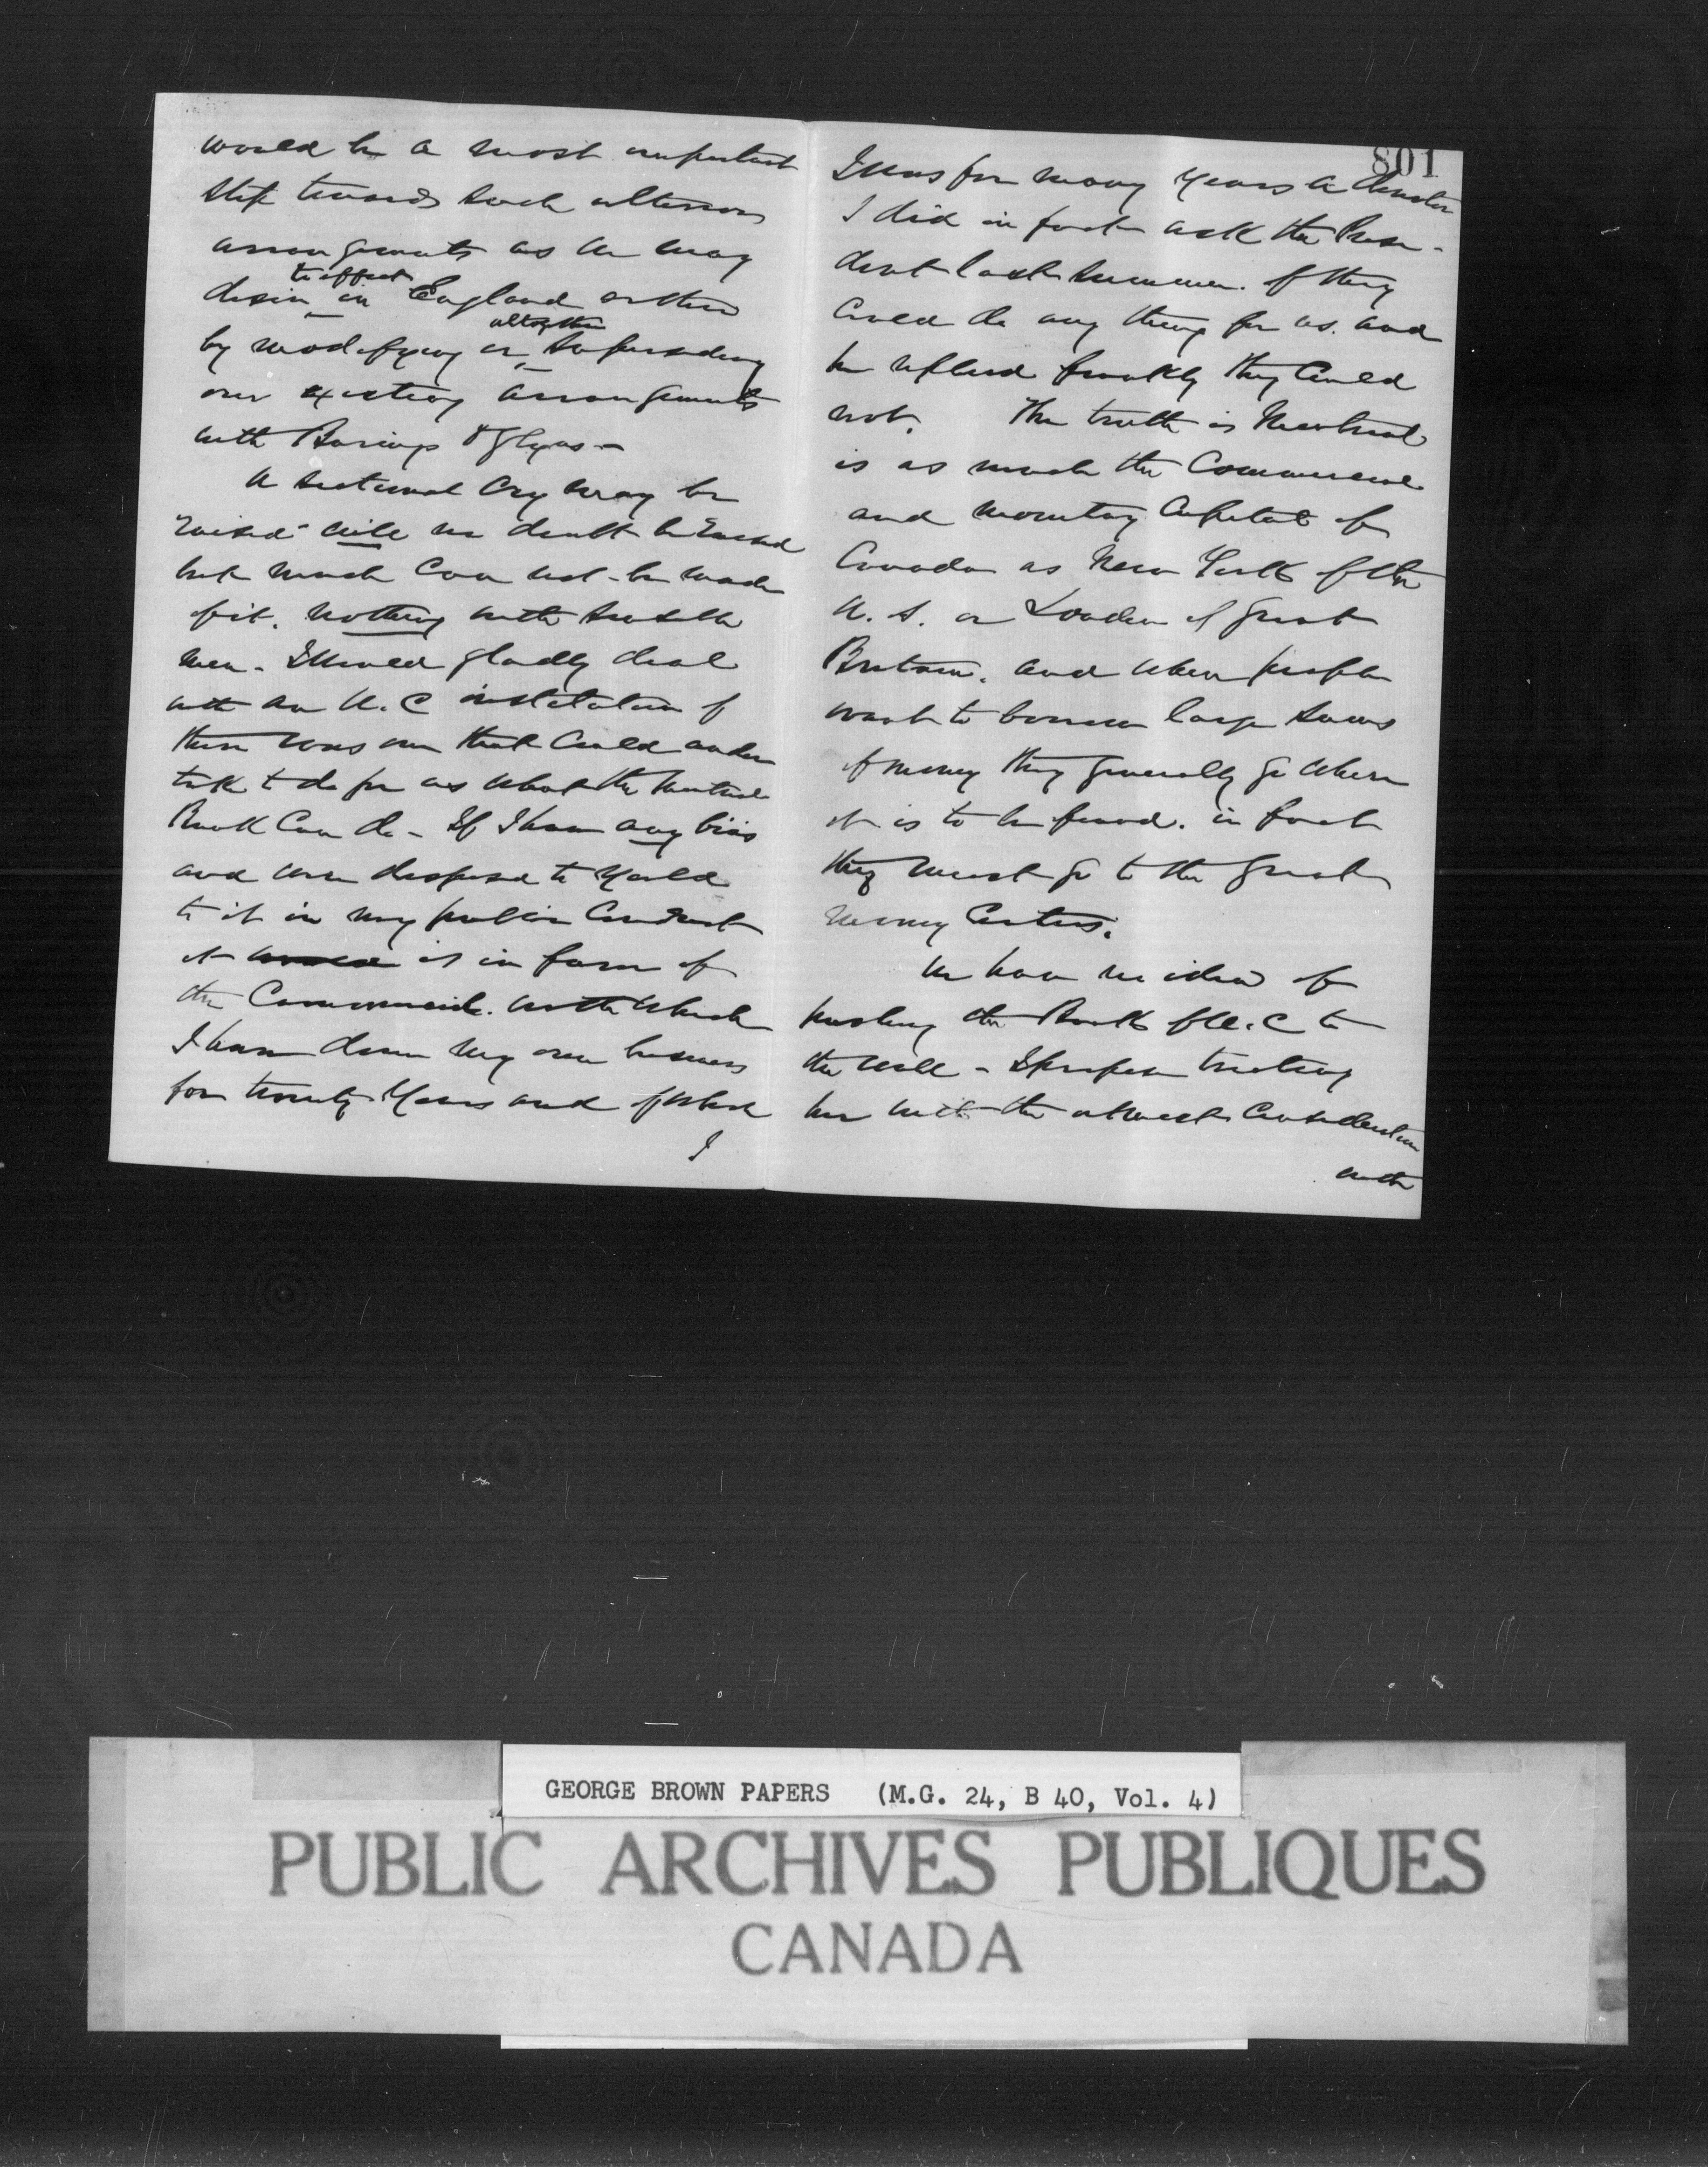 would be a most important
step towards such ulterior
arrangements as we may
desire to effect in England either
by modifying or altogether superseding
our existing arrangements
with Barings & Glyns -
A sectional cry may be
raised - will no doubt be raised
but much can not be made
of it. Nothing with sensible
men - I would gladly deal
with an U. C institution if
there was one that could under
take to do for us what the Montreal
Bank can do - If I have any bias
and were disposed to yield
to it in my public conduct
it is in favor of
the Commercial. with which
I have done my own business
for twenty years and of which
I
801
I was for many years a director
I did in fact ask the Presi-
dent last summer. if they
could do any thing for us. and
he replied frankly they could
not. The truth is Montreal
is as much the Commercial
and monetary Capital of
Canada as New York of the
U. S. or London of Great
Britain. and when people
want to borrow large sums
of money they generally go where
it is to be found. in fact
they must go to the great
money Centres.
We have no idea of
pushing the Bank of U. C to
the wall - I propose treating
her with the utmost consideration
with
GEORGE BROWN PAPERS (M.G. 24, B 40, Vol. 4)
PUBLIC ARCHIVES PUBLIQUES
CANADA